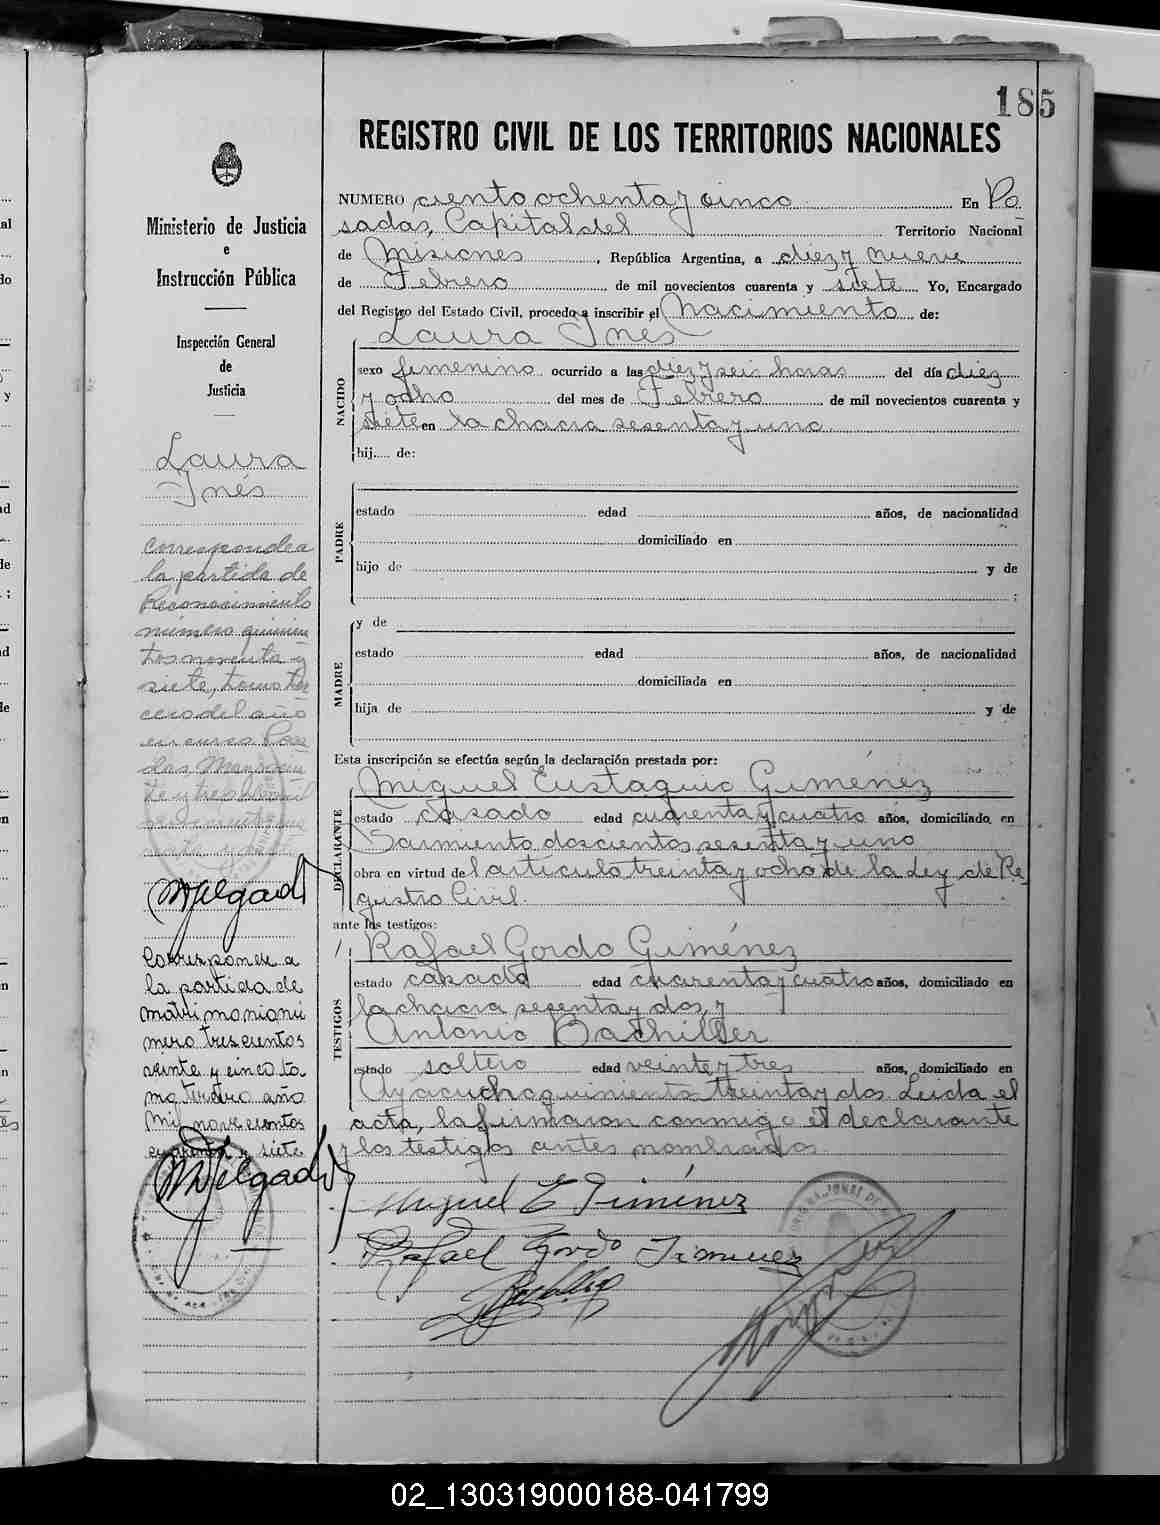 185
REGISTRO CIVIL DE LOS TERRITORIOS NACIONALES
Ministerio de Justicia
e
Instrucción Pública
Inspección General
de
Justicia
Laura
Inés
Corresponde a
la partida de
Reconocimiento
número quinien
tos noventa y
siete, tomo ter
cero del año
en curso. Posa
das, Marzo
te y tres de mil
novecientos
MDelgado
Corresponde a
la partida de
matrimonio nú
mero trescientos
veinte y cinco to
mo tercero año
Mil novecientos
cuarenta y siete
MDelgado
NUMERO ciento ochenta y cinco En Po
sadas, Capital del Territorio Nacional
de Misiones, República Argentina, a diez y nueve
de Febrero de mil novecientos cuarenta y siete Yo, Encargado
del Registro del Estado Civil, procedo a inscribir el Nacimiento de:
Laura Ines
NACIDO
sexo femenino ocurrido a las diez y seis horas del día diez
y ocho del mes de Febrero de mil novecientos cuarenta y
siete en la chacra sesenta y uno
hij..... de:
PADRE
estado edad años, de nacionalidad
domiciliado en
hijo de y de
;
MADRE
y de
estado edad años, de nacionalidad
domiciliada en
hija de y de
Esta inscripción se efectúa según la declaración prestada por:
Miguel Eustaquio Giménez
DECLARANTE
estado casado edad cuarenta y cuatro años, domiciliado en
Sarmiento doscientos sesenta y uno
obra en virtud del artículo treinta y ocho de la Ley de Re
gistro Civil.
ante los testigos:
Rafael Gordo Giménez
TESTIGOS
estado casado edad cuarenta y cuatro años, domiciliado en
la chacra sesenta y dos, y
Antonio Bachiller
estado soltero edad veinte y tres años, domiciliado en
Ayacucho quinientos treinta y dos. Leida el
acta, la firmaron conmigo el declarante
y los testigos antes nombrados.
Miguel E Giménez
Rafael Gordo Jimenez
02_130319000188-041799